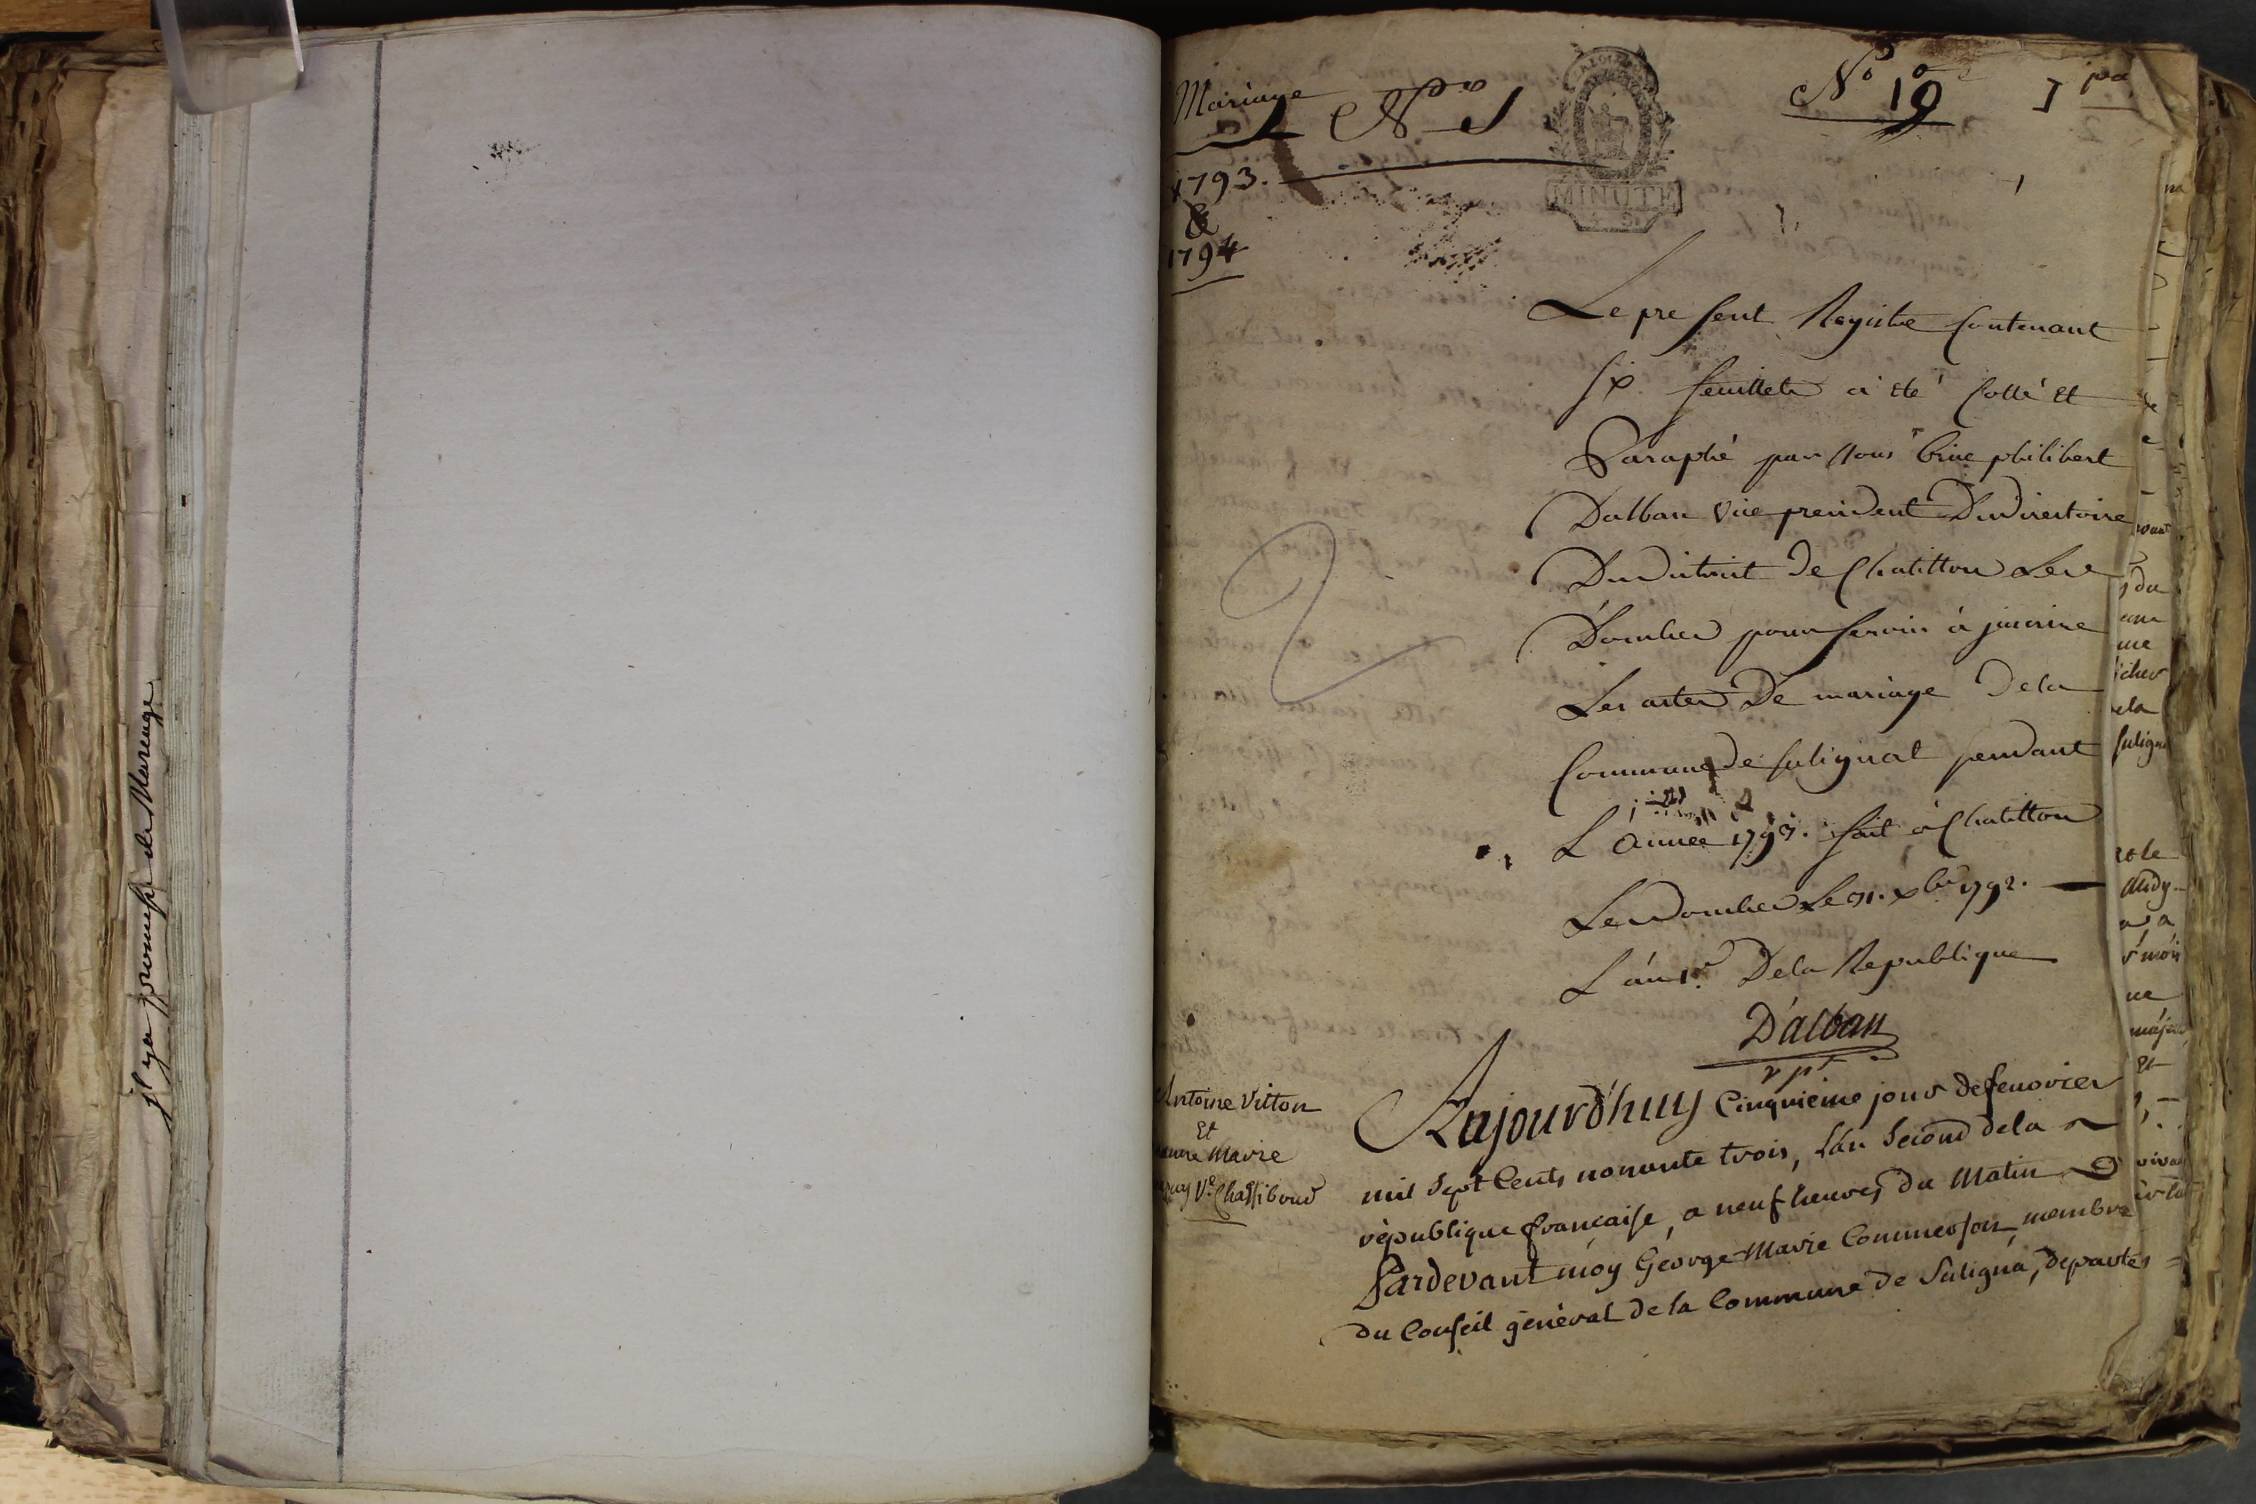 j'l ya promesse de Mareuge
Mariage
N° 1
N° 19
1 pa
1793.
&
1794
MINUTE
4 S
Le present Registre Contenant
six feuillets a été Cotté et
Paraphé par Nous Brice philibert
Dalban Vice president Du Directoire
Du District De Chatillon Les
Dombes pour servir à jnscrire
Les actes De mariage De la
Commune de Sulignat pendant
L'Année 1793. fait à Chatillon
Les Dombes Le 31. xbre 1792.
L'an 1er De la Republique
D'alban
v pt
Antoine Vitton
Et
Marie
Ve Chassiboud
Aujourd'huy Cinquieme jour de fenvrier
mil Sept Cents nonante trois, L'an Second de la
république francaise, a neuf heures du Matin
Pardevant moy George Marie Commerson membre
du Conseil géneral de la Commune de Suligna, departe=